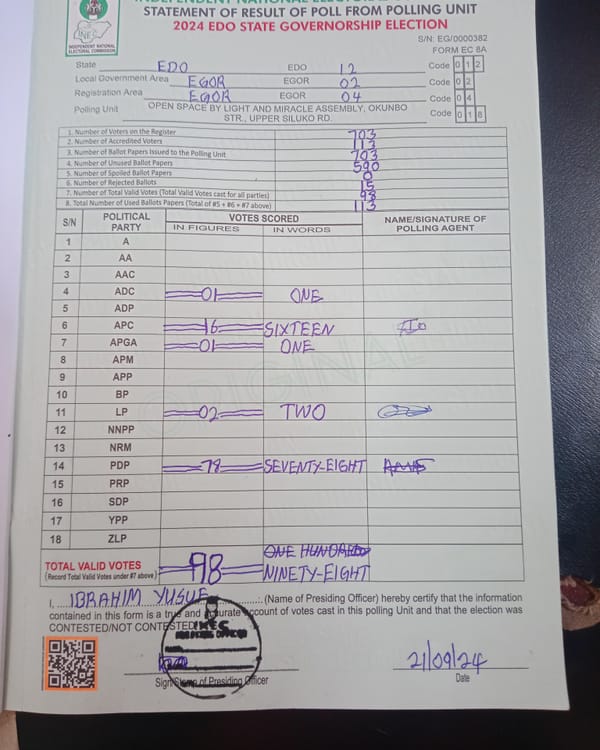 INDEPENDENT NATIONAL
ELECTORAL COMMISSION
STATEMENT OF RESULT OF POLL FROM POLLING UNIT
2024 EDO STATE GOVERNORSHIP ELECTION
S/N: EG/0000382
FORM EC 8A
State EDO EDO 12 Code 0 1 2
Local Government Area EGOR EGOR 02 Code 0 2
Registration Area EGOR EGOR 04 Code 0 4
Polling Unit OPEN SPACE BY LIGHT AND MIRACLE ASSEMBLY, OKUNBO STR., UPPER SILUKO RD. Code 0 1 8
1. Number of Voters on the Register 703
2. Number of Accredited Voters 113
3. Number of Ballot Papers Issued to the Polling Unit 703
4. Number of Unused Ballot Papers 590
5. Number of Spoiled Ballot Papers 0
6. Number of Rejected Ballots 15
7. Number of Total Valid Votes (Total Valid Votes cast for all parties) 98
8. Total Number of Used Ballots Papers (Total of #5 + #6 + #7 above) 113
S/N POLITICAL PARTY VOTES SCORED NAME/SIGNATURE OF POLLING AGENT
IN FIGURES IN WORDS
1 A
2 AA
3 AAC
4 ADC 01 ONE
5 ADP
6 APC 16 SIXTEEN
7 APGA 01 ONE
8 APM
9 APP
10 BP
11 LP 02 TWO
12 NNPP
13 NRM
14 PDP 78 SEVENTY-EIGHT
15 PRP
16 SDP
17 YPP
18 ZLP
ORIGINAL
ONE HUNDRED
TOTAL VALID VOTES 98 NINETY-EIGHT
(Record Total Valid Votes under #7 above)
I, IBRAHIM YUSUF (Name of Presiding Officer) hereby certify that the information
contained in this form is a true and accurate account of votes cast in this polling Unit and that the election was
CONTESTED/NOT CONTESTED
INEC
PRESIDING OFFICER
21/09/24
Sign of Presiding Officer Date